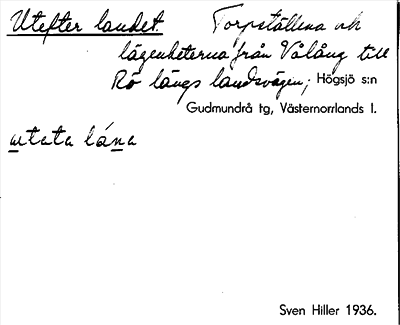 Utefter landet. Torpställena och
lägenheterna från Vålång till
Rö längs landsvägen, Högsjö s:n
Gudmundrå tg, Västernorrlands l.
utata lána
Sven Hiller 1936.